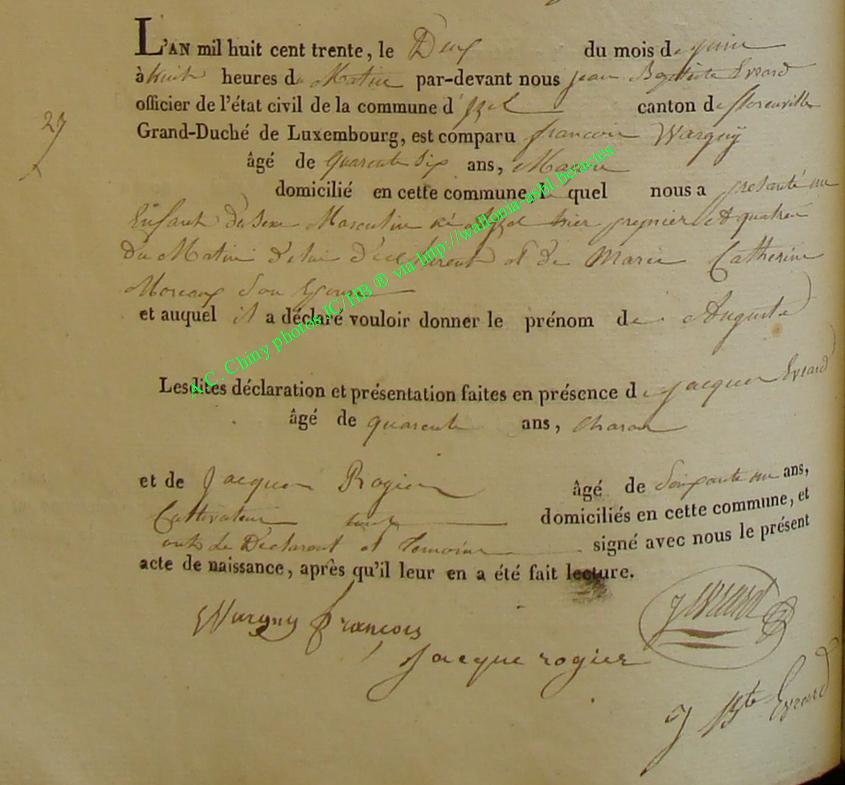 L'AN mil huit cent trente, le Deux du mois de juin
à huit heures du Matin par-devant nous jean Baptiste Evrard
officier de l'état civil de la commune d'Izel canton de florenville
Grand-Duché de Luxembourg, est comparu françois Wargny
27
âgé de quarente six ans, Maçon
domicilié en cette commune, le quel nous a presenté un
Enfant du Sexe Masculin né izel hier premier et quatre
du Matin de lui déclarent et de Marie Catherine
Moreaux Son Epouse
et auquel il a déclaré vouloir donner le prénom de Auguste
Lesdites déclaration et présentation faites en présence de jacques Evrard
âgé de quarente ans, charon
et de Jacques Rogier âgé de Soixante un ans,
Cultivateur domiciliés en cette commune, et
ont Le Déclarent et temoins signé avec nous le présent
acte de naissance, après qu'il leur en a été fait lecture.
Wargny françois
J evrard
jacque rogier
J Bte Evrard
A.C. Chiny photos JC/HB ® via http://wallonia-asbl.be/actes